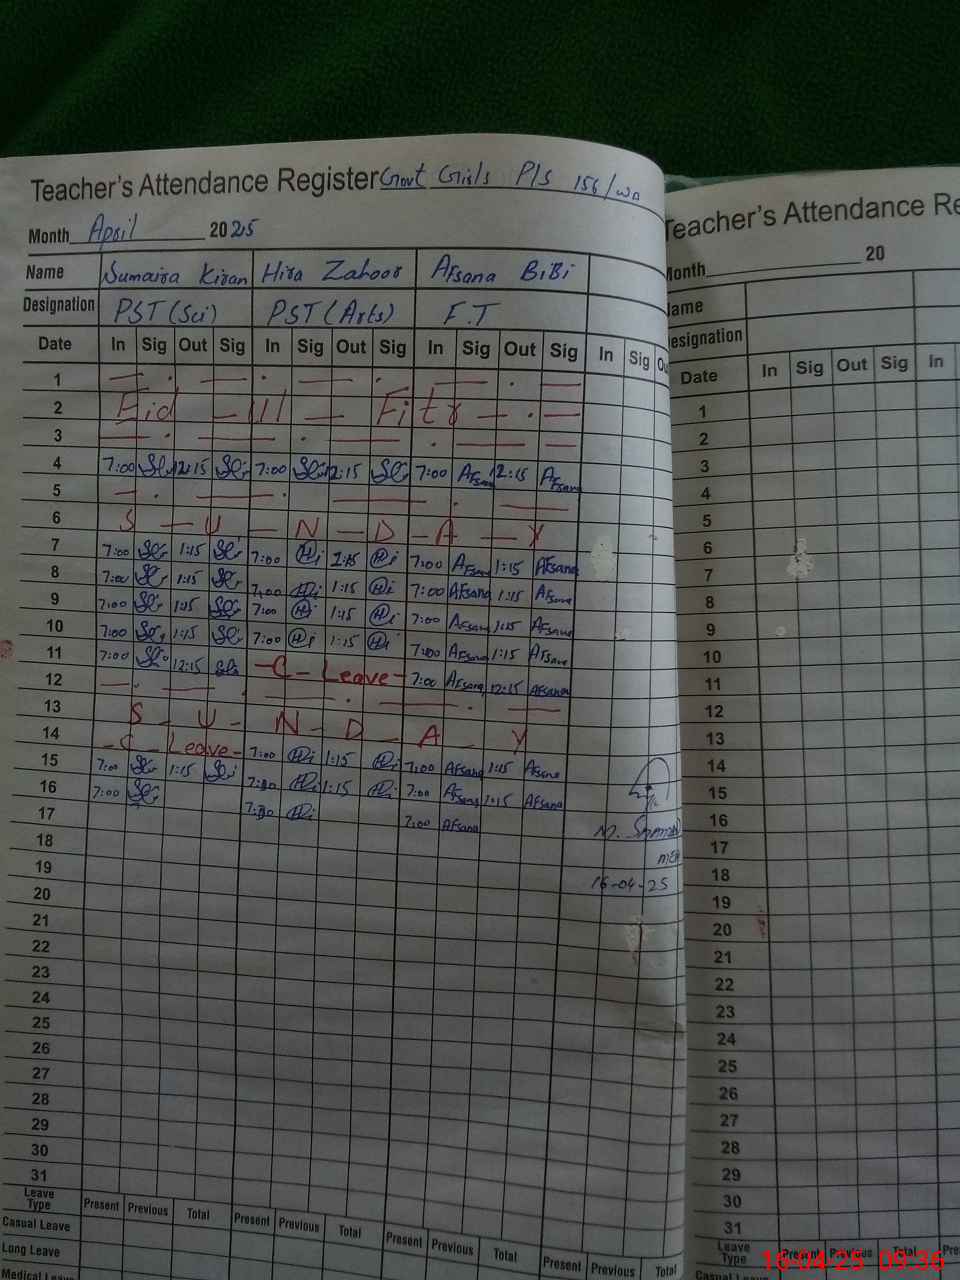 Teacher's Attendance Register Govt Girls P/S 156/WB
Month April 2025
Name Sumaira Kiran Hira Zahoor Afsana BiBi
Designation PST (Sci) PST (Arts) F.T
Date In Sig Out Sig In Sig Out Sig In Sig Out Sig In Sig
1
2 Eid - Ul - Fitr
3
4 7:00 12:15 7:00 12:15 7:00 Afsana 12:15 Afsana
5
6 S - U - N - D - A - Y
7 7:00 1:15 7:00 1:15 7:00 Afsana 1:15 Afsana
8 7:00 1:15 7:00 1:15 7:00 Afsana 1:15 Afsana
9 7:00 1:15 7:00 1:15 7:00 Afsana 1:15 Afsana
10 7:00 1:15 7:00 1:15 7:00 Afsana 1:15 Afsana
11 7:00 12:15 - C - Leave - 7:00 Afsana 12:15 Afsana
12
13 S - U - N - D - A - Y
14 - C - Leave - 7:00 1:15 7:00 Afsana 1:15 Afsana
15 7:00 1:15 7:00 1:15 7:00 Afsana 1:15 Afsana
16 7:00 7:00 7:00 Afsana
17
18
19
20
21
22
23
24
25
26
27
28
29
30
31
16-04-25
Leave Type Present Previous Total Present Previous Total Present Previous Total Present Previous Total
Casual Leave
Long Leave
Medical
Teacher's Attendance Re
Month 20
Name
Designation
Date In Sig Out Sig In
1
2
3
4
5
6
7
8
9
10
11
12
13
14
15
16
17
18
19
20
21
22
23
24
25
26
27
28
29
30
31
Leave Type Present Previous Total Pre
16-04-25 09:36